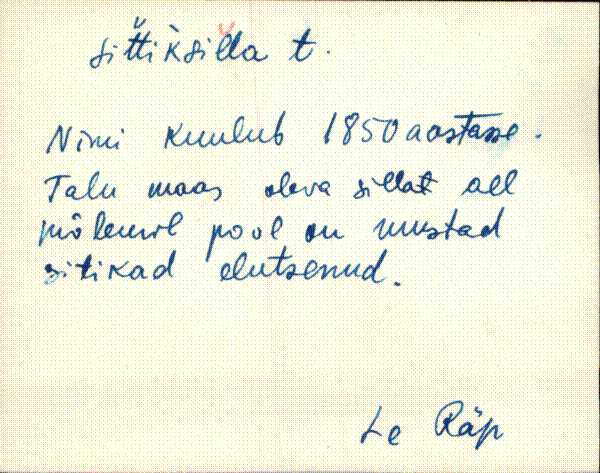 sittiksilla t.
Nimi kuulub 1850 aastasse.
Talu maas oleva sillat all
põlemil pool on mustad
sitikad elutsenud.
Le Räp